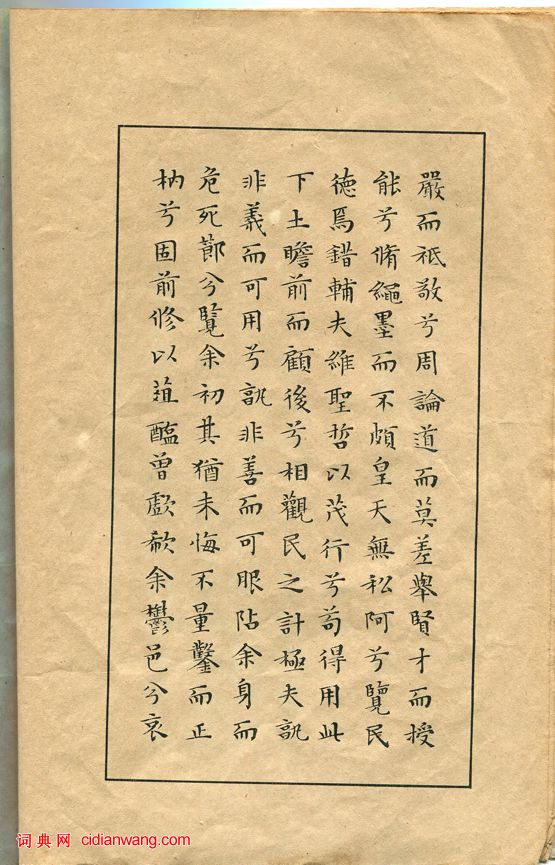 嚴而祗敬兮周論道而莫差舉賢才而授
能兮脩繩墨而不頗皇天無私阿兮覽民
德焉錯輔夫維聖哲以茂行兮苟得用此
下土瞻前而顧後兮相觀民之計極夫孰
非義而可用兮孰非善而可服阽余身而
危死節兮覽余初其猶未悔不量鑿而正
枘兮固前修以菹醢曾歔欷余鬱邑兮哀
词典网 cidianwang.com